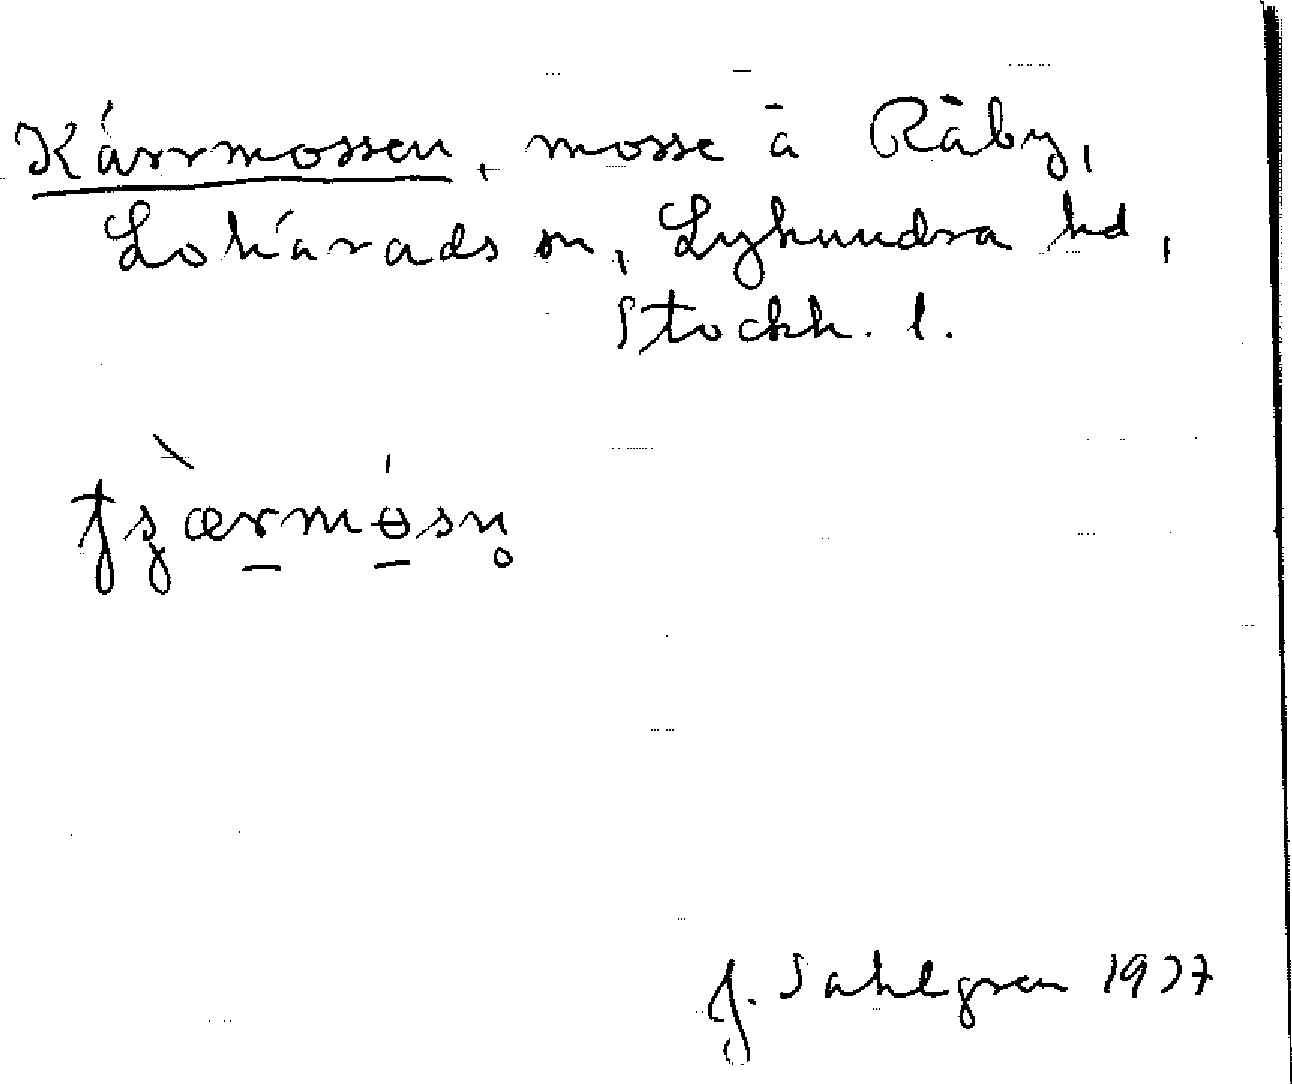 Kärrmossen, mosse å Råby,
Lohärads sn, Lyhundra hd,
Stockh. l.
J. Sahlgren 1927